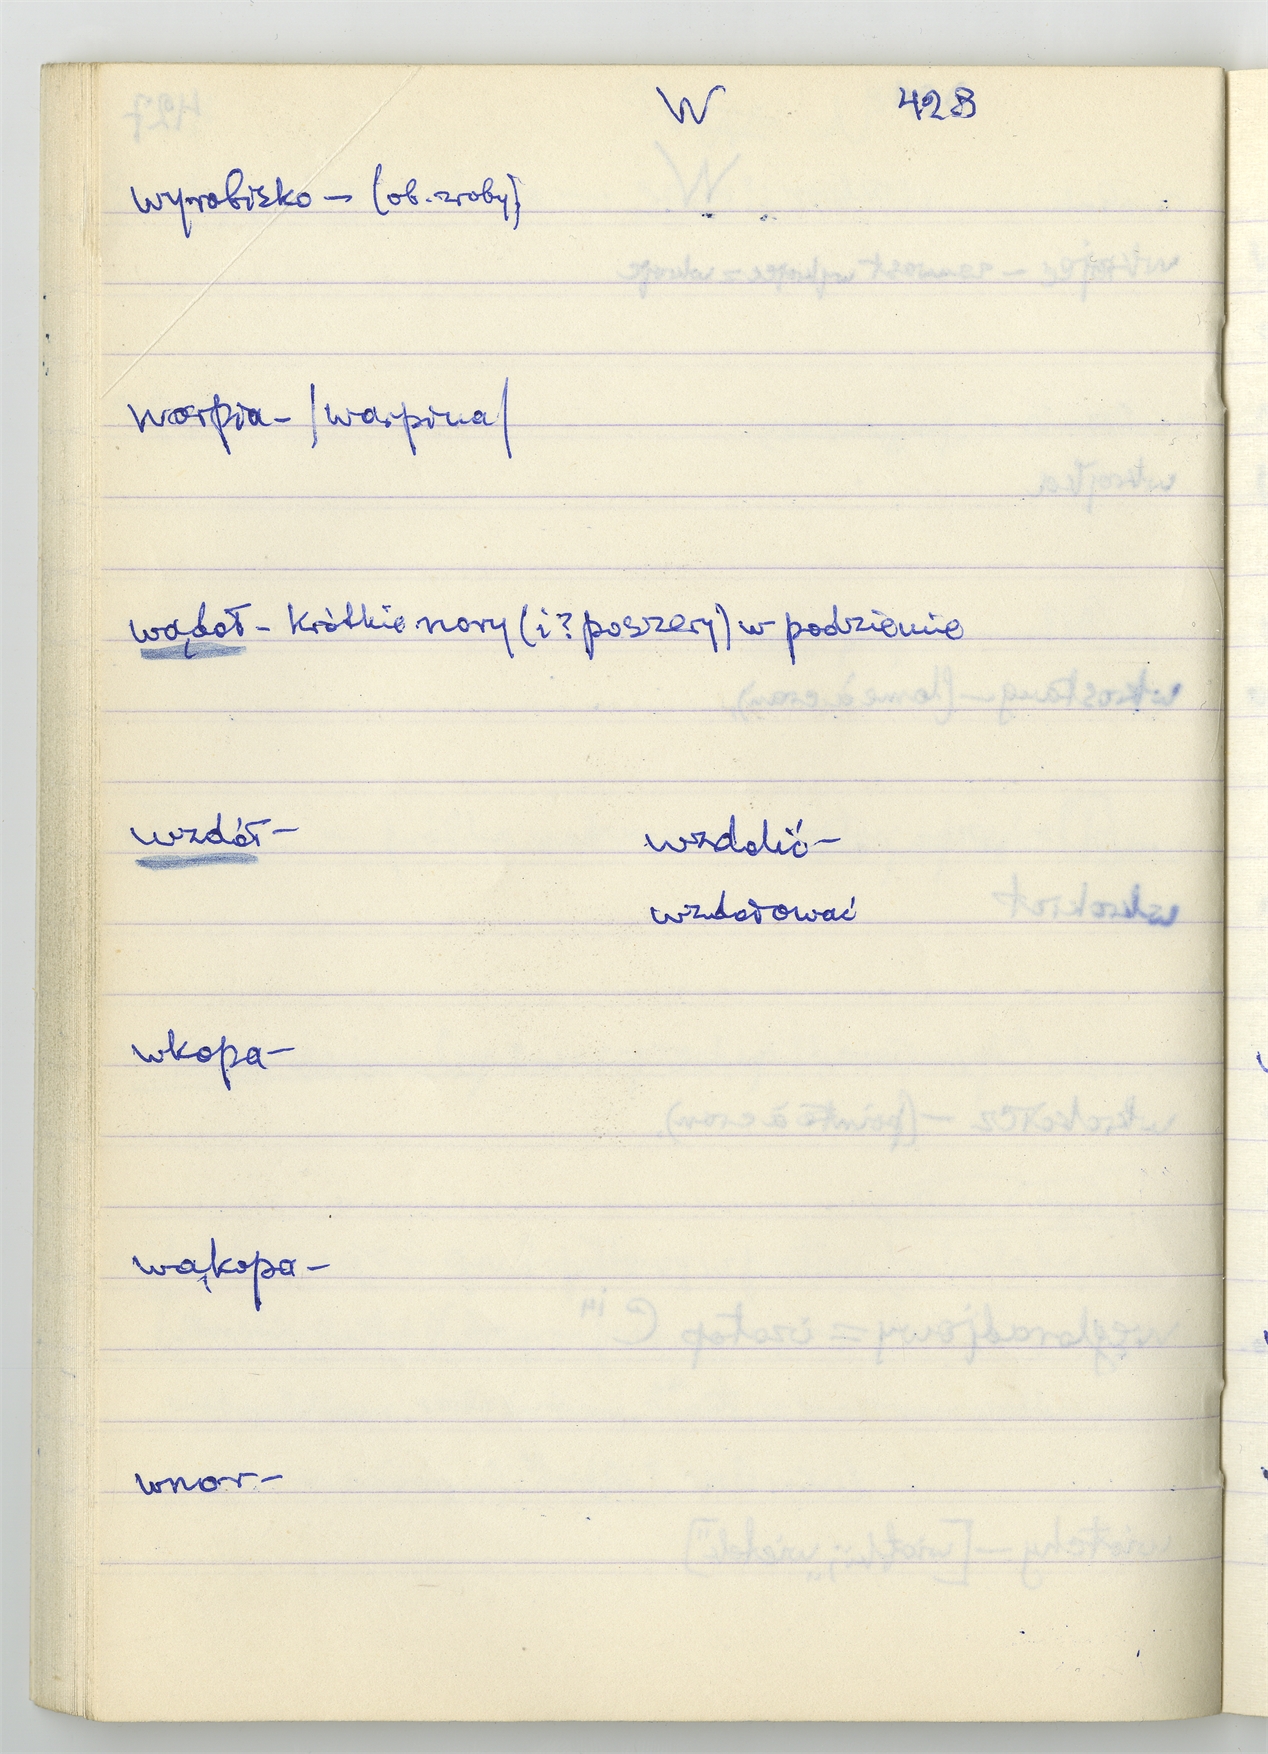 W 428
wyrobisko – (ob. zroby)
warpia – /warpina/
wądoł – krótkie nory (i? poszery) w podziemie
wzdół – wzdolić –
wzdołować
wkopa –
wąkopa –
wnor –